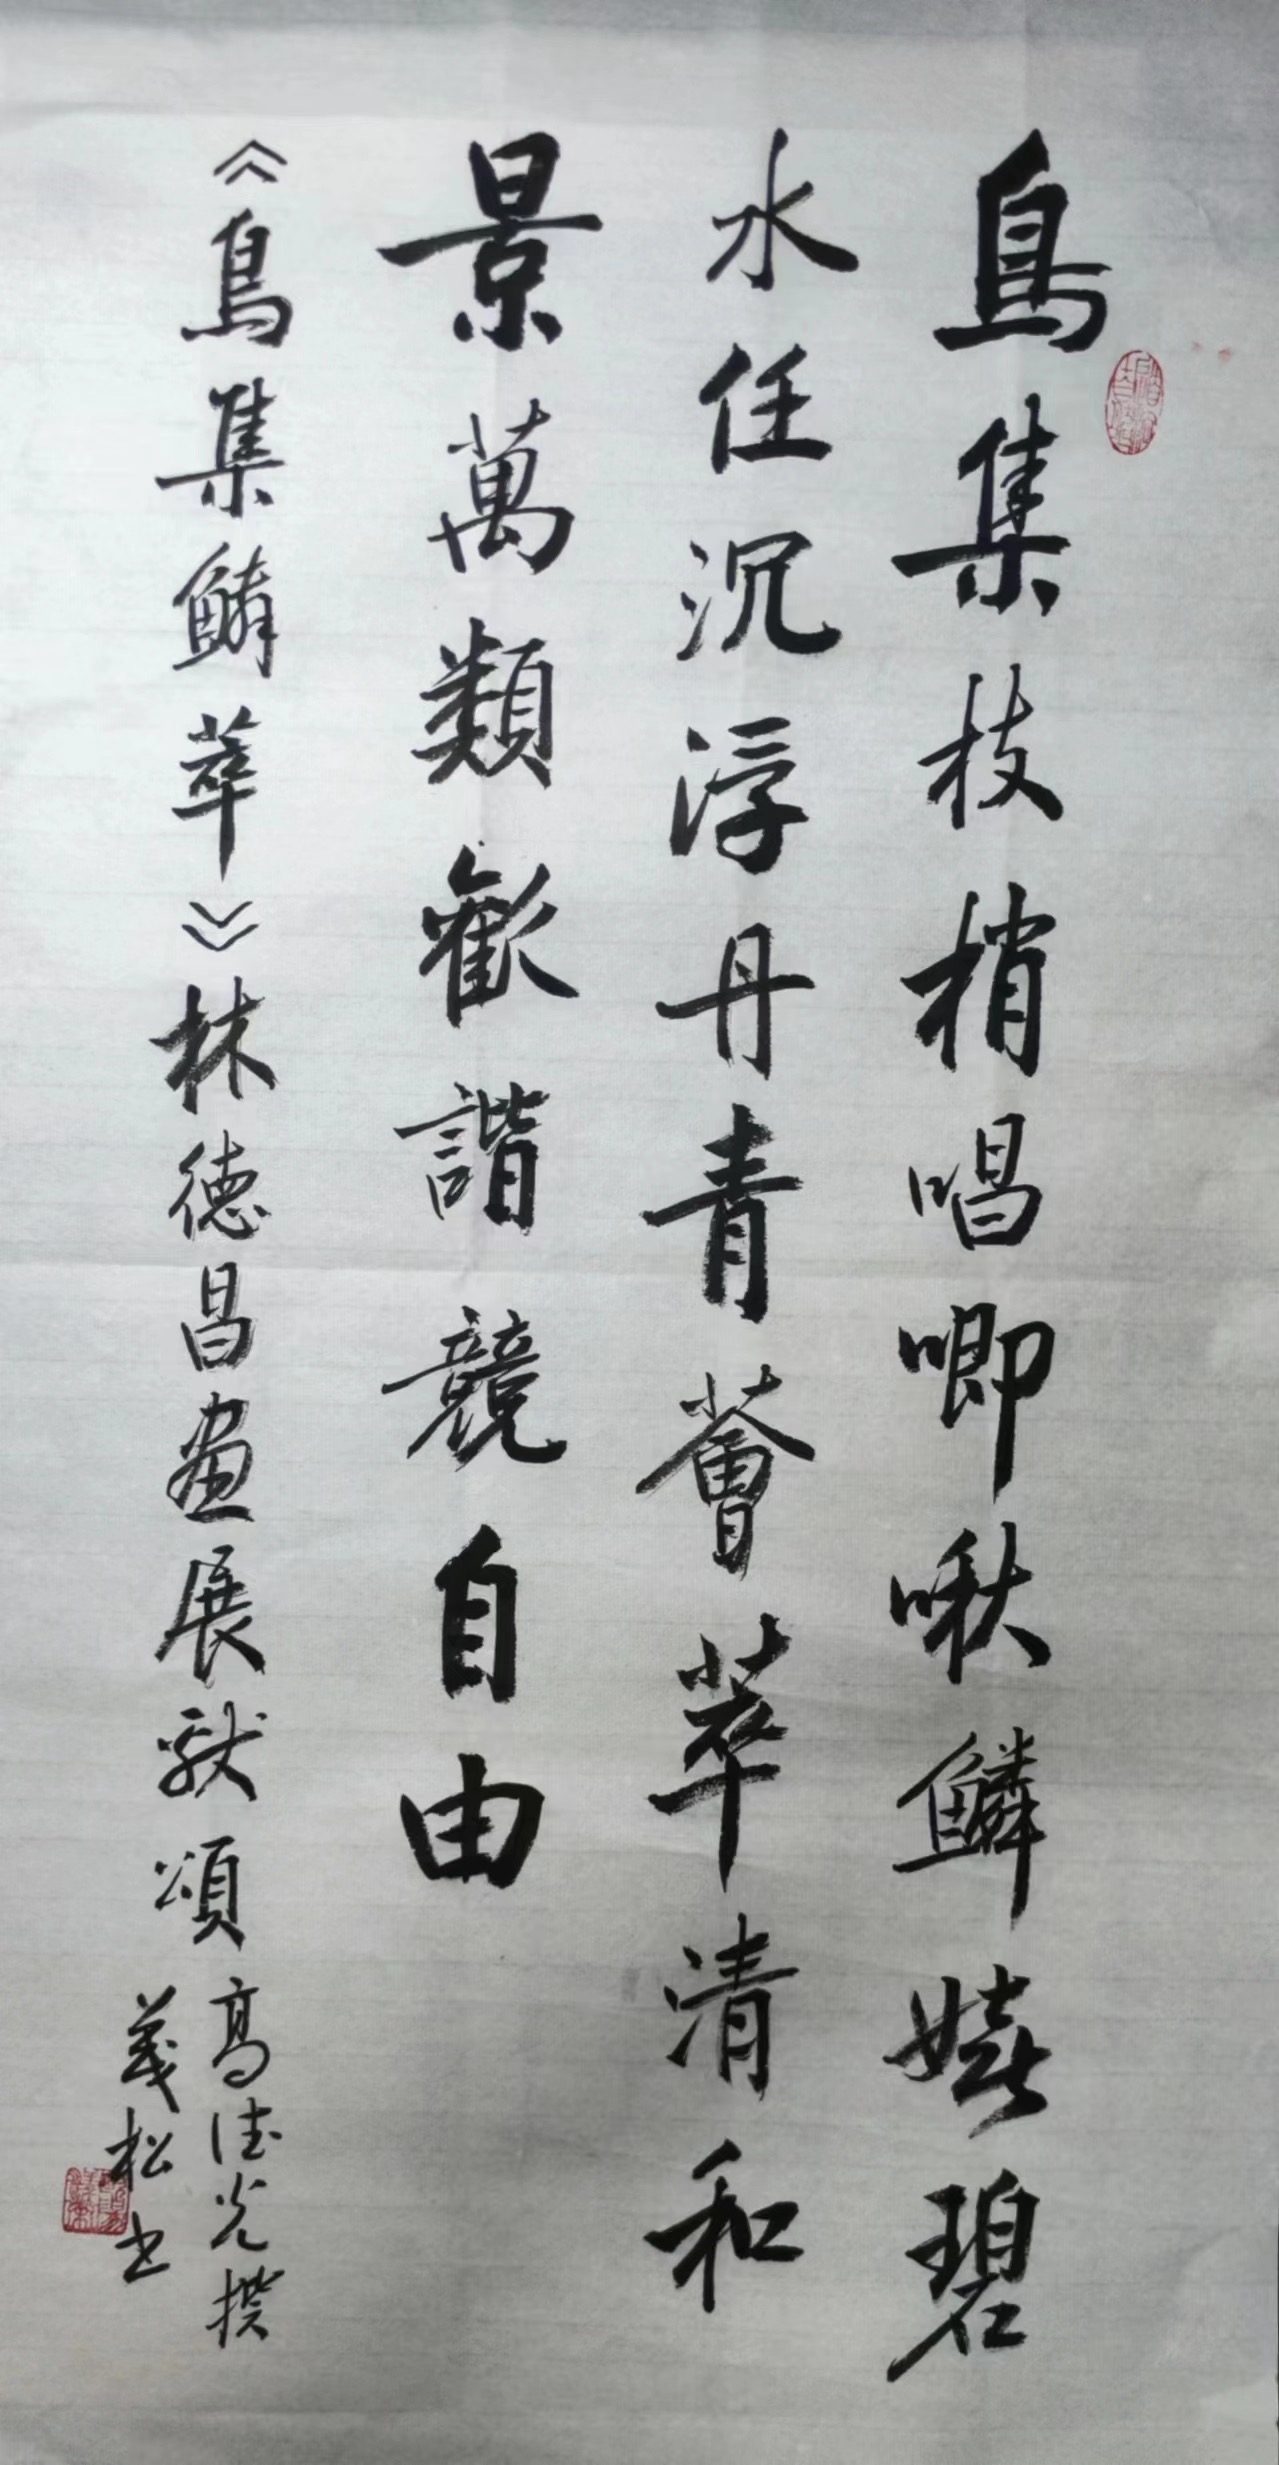 鳥集枝梢唱唧啾鱗嬉碧
水任沉浮丹青薈萃清和
景萬類歡諧競自由
《鳥集鱗萃》林德昌畫展獻頌
高德光撰
義松書